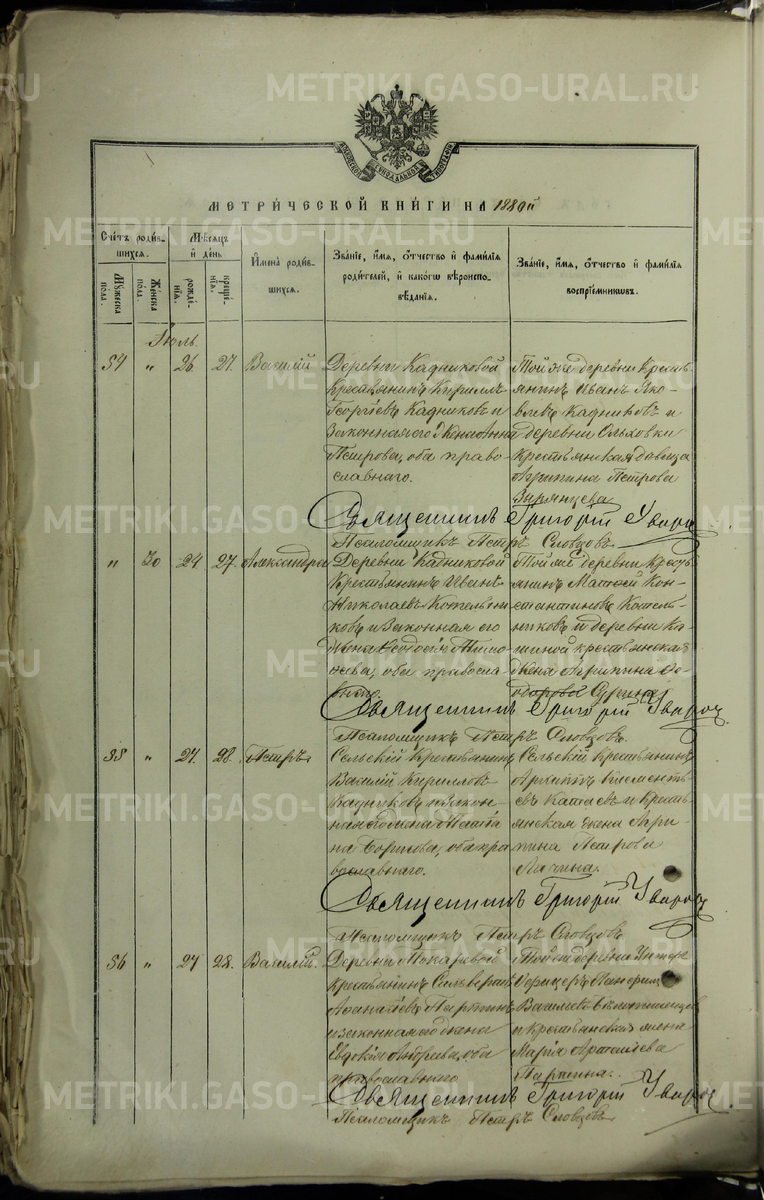 METRIKI.GASO-URAL.RU
МОСКОВСКОЙ СѴНОДАЛЬНОЙ ТИПОГРАФІИ
МЕТРИ́ЧЕСКОЙ КНИ́ГИ НА 1880й
Сче́тъ роди́в-
шихся.
Мꙋ́жеска по́ла.
Же́нска по́ла.
Мѣ́сяцъ и҆ день
рожде́нїѧ.
креще́нїѧ.
И҆мена̀ роди́в-
шихся.
Зва́нїе, и҆́мѧ, ѻ҆́тчество и҆ фами́лїѧ
роди́телей, и҆ како́гѡ вѣроиспо-
вѣ́данїѧ.
Зва́нїе, и҆́мѧ, ѻ҆́тчество и҆ фами́лїѧ
воспрїе́мникѡвъ.
Іюль.
54 " 26. 27. Василій
Деревни Кадниковой
крестьянинъ Кириллъ
Георгіевъ Кадниковъ и
законная его жена Анна
Петрова, оба право-
славнаго.
Той же деревни кресть-
янинъ Иванъ Яко-
влевъ Кадниковъ и
деревни Ольховки
крестьянская дѣвица
Агрипина Петрова
Зырянцева
Священникъ Григорій Уваровъ
Псаломщикъ Петръ Словцовъ
" 30 24 27. Александра
Деревни Кадниковой
крестьянинъ Иванъ
Николаевъ Котельни-
ковъ и законная его
жена Ѳеодосія
оба правосла-
внаго.
Той же деревни кресть-
янинъ Матвей Кон-
стантиновъ Котель-
никовъ и деревни
крестьянская
жена Агрипина Ѳе-
одорова
Священникъ Григорій Уваровъ
Псаломщикъ Петръ Словцовъ.
55 " 27. 28. Петръ
Сельскій крестьянинъ
Василій Кирилловъ
Кадниковъ и закон-
ная его жена
оба пра-
вославнаго.
Сельскій крестьянинъ
Архипъ Клементь-
евъ Катаевъ и кресть-
янская жена Агри-
пина Петрова
Священникъ Григорій Уваровъ
Псаломщикъ Петръ Словцовъ
56 " 27 28. Василій.
Деревни Макаровой
крестьянинъ Сильверстъ
Аѳанасіевъ Паршинъ
и законная его жена
Евдокія оба
православнаго
Той же деревни Унтеръ
Офицеръ
Васильевъ
и крестьянская жена
Марія
Паршина.
Священникъ Григорій Уваровъ
Псаломщикъ Петръ Словцовъ